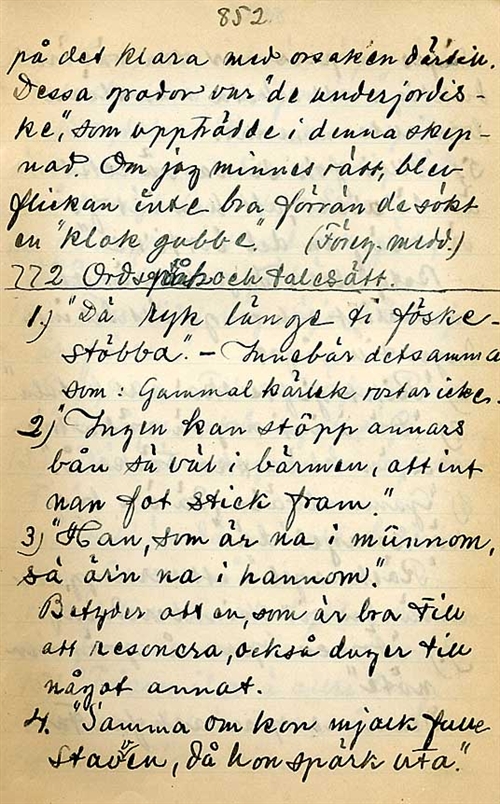 852
på det klara med orsaken därtill.
Dessa grodor var "de underjordis-
ke", som uppträdde i denna skep-
nad. Om jag minnes rätt, blev
flickan inte bra förrän de sökt
en "klok gubbe". (Föreg. medd.)
772 Ordspråk och talesätt.
1.) "Dä ryk länge ti föske-
stöbba". - Innebär detsamma
som: Gammal kärlek rostar icke.
2) "Ingen kan stöpp annars
bån så väl i bärmen, att int
nan fot stick fram."
3) "Han, som är na i münnom,
så ärn na i hannom."
Betyder att en, som är bra till
att resonera, också duger till
något annat.
4. "Samma om kon mjölk full
staven, då hon spark uta."